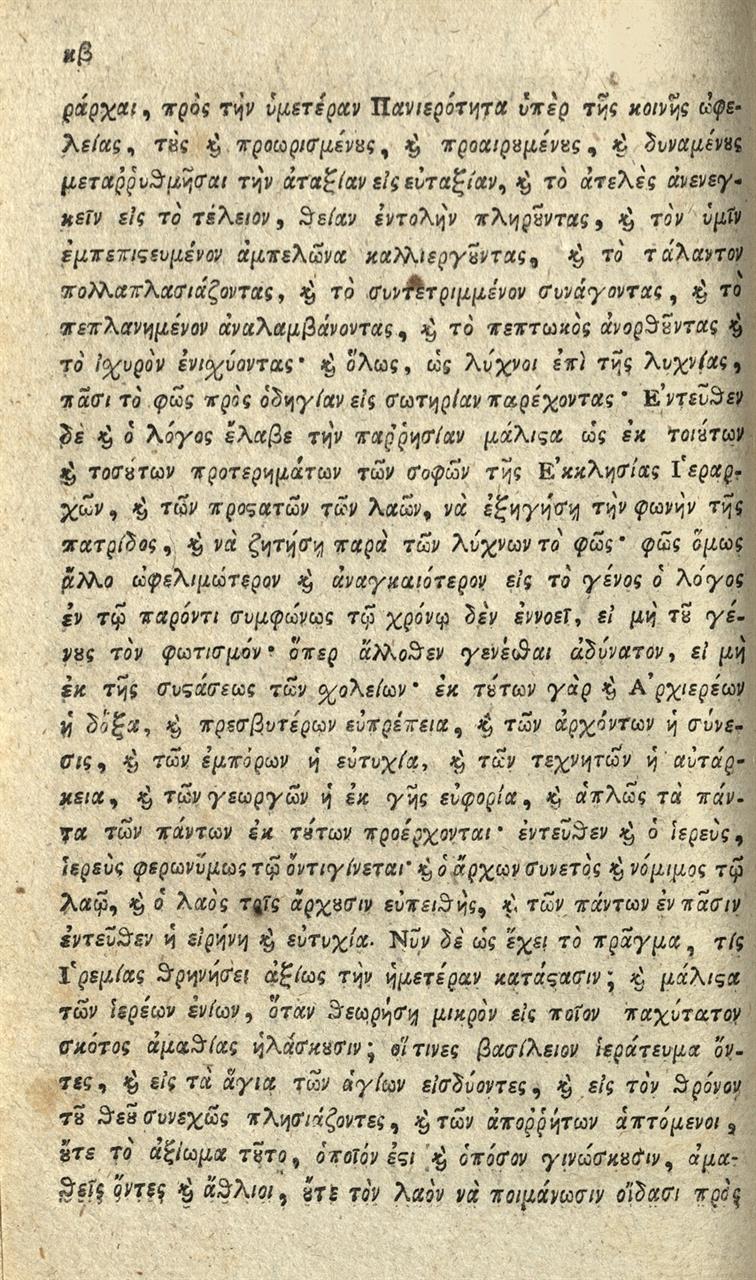 κβ
ράρχαι, πρὸς τὴν ὑμετέραν Πανιερότητα ὑπὲρ τῆς κοινῆς ὠφε-
λείας, τȣ̀ς ϗ̀ προωρισμένȣς, ϗ̀ προαιρȣμένȣς, ϗ̀ δυναμένȣς
μεταῤῥυθμῆσαι τὴν ἀταξίαν εἰς εὐταξίαν, ϗ̀ τὸ ἀτελὲς ἀνενεγ-
κεῖν εἰς τὸ τέλειον, ϑείαν ἐντολὴν πληρȣ͂ντας, ϗ̀ τὸν ὑμῖν
ἐμπεπιϛευμένον ἀμπελῶνα καλλιεργȣ͂ντας, ϗ̀ τὸ τάλαντον
πολλαπλασιάζοντας, ϗ̀ τὸ συντετριμμένον συνάγοντας, ϗ̀ τὸ
πεπλανημένον ἀναλαμβάνοντας, ϗ̀ τὸ πεπτωκὸς ἀνορϑȣ͂ντας ϗ̀
τὸ ἰχυρὸν ἐνιχύοντας· ϗ̀ ὅλως, ὡς λύχνοι ἐπὶ τῆς λυχνίας,
πᾶσι τὸ φῶς πρὸς ὁδηγίαν εἰς σωτηρίαν παρέχοντας· Ἐντεῦϑεν
δὲ ϗ̀ ὁ λόγος ἔλαβε τὴν παῤῥησίαν μάλιϛα ὡς ἐκ τοιȣ́των
ϗ̀ τοσȣ́των προτερημάτων τῶν σοφῶν τῆς Ἐκκλησίας Ἱεραρ-
χῶν, ϗ̀ τῶν προϛατῶν τῶν λαῶν, νὰ ἐξηγήσῃ τὴν φωνὴν τῆς
πατρίδος, ϗ̀ νὰ ζητήσῃ παρὰ τῶν λύχνων τὸ φῶς· φῶς ὅμως
ἄλλο ὠφελιμώτερον ϗ̀ ἀναγκαιότερον εἰς τὸ γένος ὁ λόγος
ἐν τῷ παρόντι συμφώνως τῷ χρόνῳ δὲν ἐννοεῖ, εἰ μὴ τȣ͂ γέ-
νȣς τὸν φωτισμόν· ὅπερ ἄλλοϑεν γενέσϑαι ἀδύνατον, εἰ μὴ
ἐκ τῆς συϛάσεως τῶν σχολείων· ἐκ τȣ́των γὰρ ϗ̀ Ἀρχιερέων
ἡ δόξα, ϗ̀ πρεσβυτέρων εὐπρέπεια, ϗ̀ τῶν ἀρχόντων ἡ σύνε-
σις, ϗ̀ τῶν ἐμπόρων ἡ εὐτυχία, ϗ̀ τῶν τεχνητῶν ἡ αὐτάρ-
κεια, ϗ̀ τῶν γεωργῶν ἡ ἐκ γῆς εὐφορία, ϗ̀ ἁπλῶς τὰ πάν-
τα τῶν πάντων ἐκ τȣ́των προέρχονται· ἐντεῦϑεν ϗ̀ ὁ ἱερεὺς,
ἱερεὺς φερωνύμως τῷ ὄντι γίνεται· ϗ̀ ὁ ἄρχων συνετὸς ϗ̀ νόμιμος τῷ
λαῷ, ϗ̀ ὁ λαὸς τοῖς ἄρχȣσιν εὐπειϑὴς, ϗ̀ τῶν πάντων ἐν πᾶσιν
ἐντεῦϑεν ἡ εἰρήνη ϗ̀ εὐτυχία. Νῦν δὲ ὡς ἔχει τὸ πρᾶγμα, τίς
Ἱρεμίας ϑρηνήσει ἀξίως τὴν ἡμετέραν κατάϛασιν; ϗ̀ μάλιϛα
τῶν ἱερέων ἐνίων, ὅταν ϑεωρήσῃ μικρὸν εἰς ποῖον παχύτατον
σκότος ἀμαϑίας ἠλάσκȣσιν; οἵ τινες βασίλειον ἱεράτευμα ὄν-
τες, ϗ̀ εἰς τὰ ἅγια τῶν ἁγίων εἰσδύοντες, ϗ̀ εἰς τὸν ϑρόνον
τȣ͂ ϑεȣ͂ συνεχῶς πλησιάζοντες, ϗ̀ τῶν ἀποῤῥήτων ἁπτόμενοι,
ȣ̓́τε τὸ ἀξίωμα τȣ͂το, ὁποῖόν ἐϛι ϗ̀ ὁπόσον γινώσκȣσιν, ἀμα-
ϑεῖς ὄντες ϗ̀ ἄϑλιοι, ȣ̓́τε τὸν λαὸν νὰ ποιμάνωσιν οἴδασι πρὸς